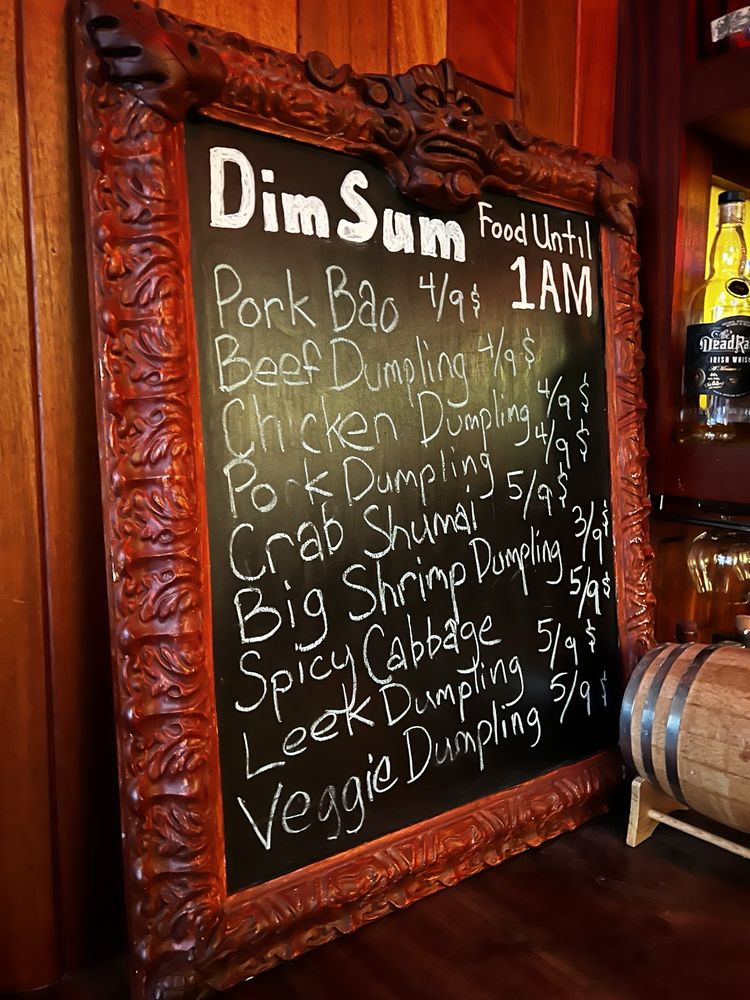 Dim Sum
Food Until
1AM
Pork Bao 4/9$
Beef Dumpling 4/9$
Chicken Dumpling 4/9 $
Pork Dumpling 4/9 $
Crab Shumai 5/9$
Big Shrimp Dumpling 3/9$
Spicy Cabbage 5/9$
Leek Dumpling 5/9 $
Veggie Dumpling 5/9 $
The
DeadRa
IRISH WHIS